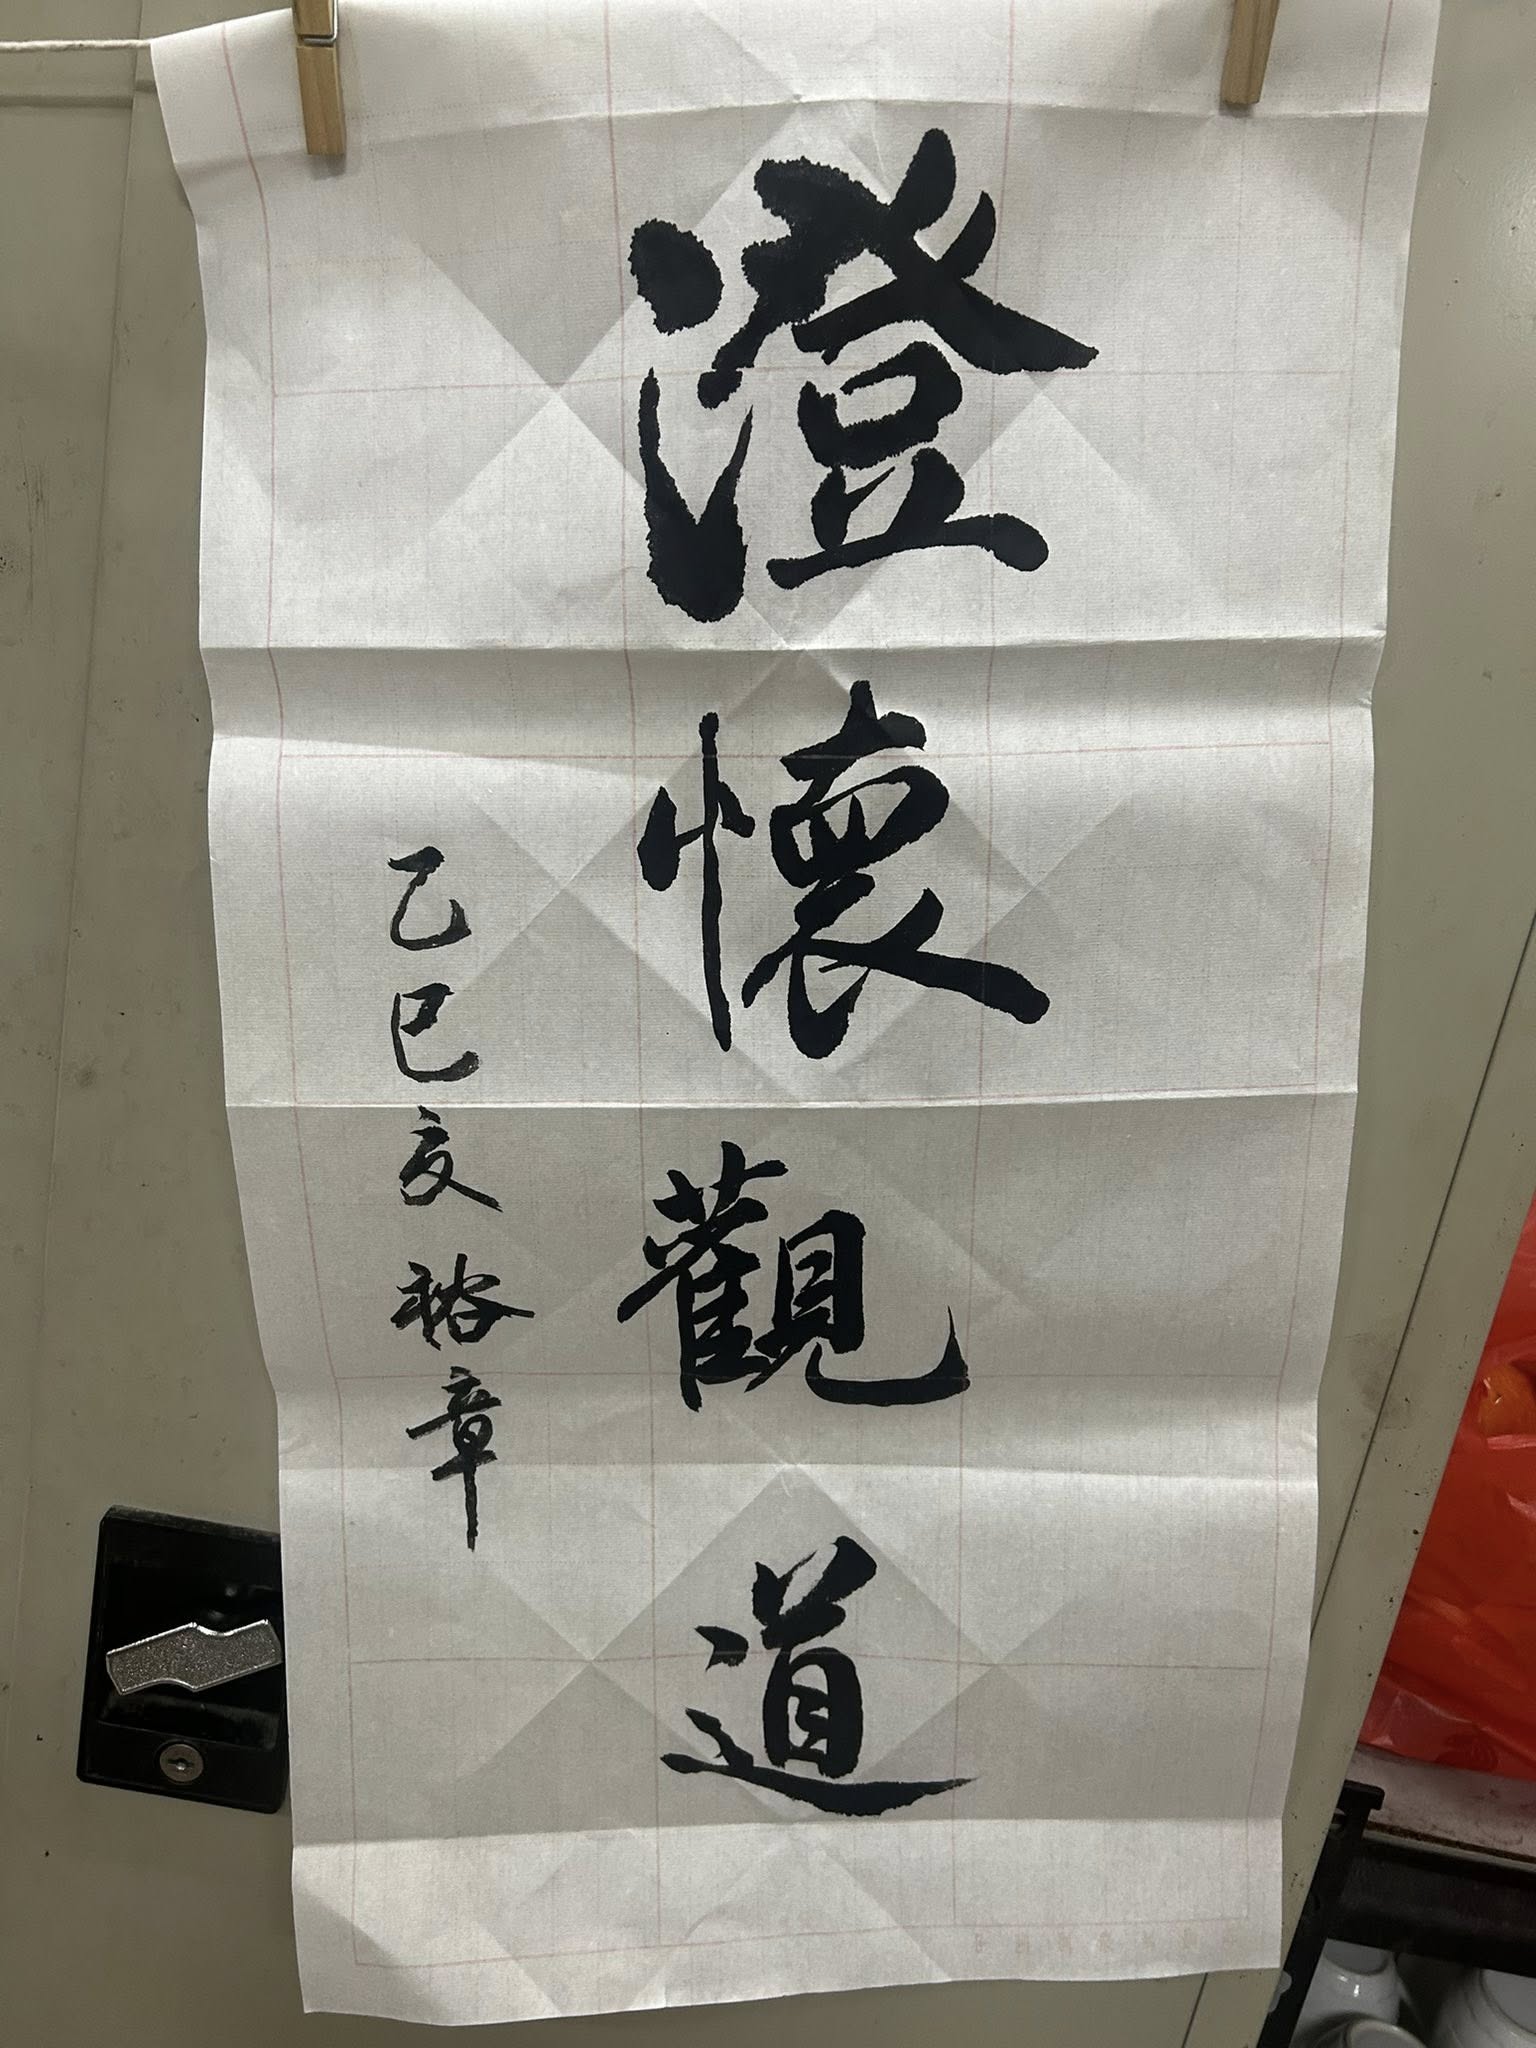 澄懷觀道
乙巳夏 裕章